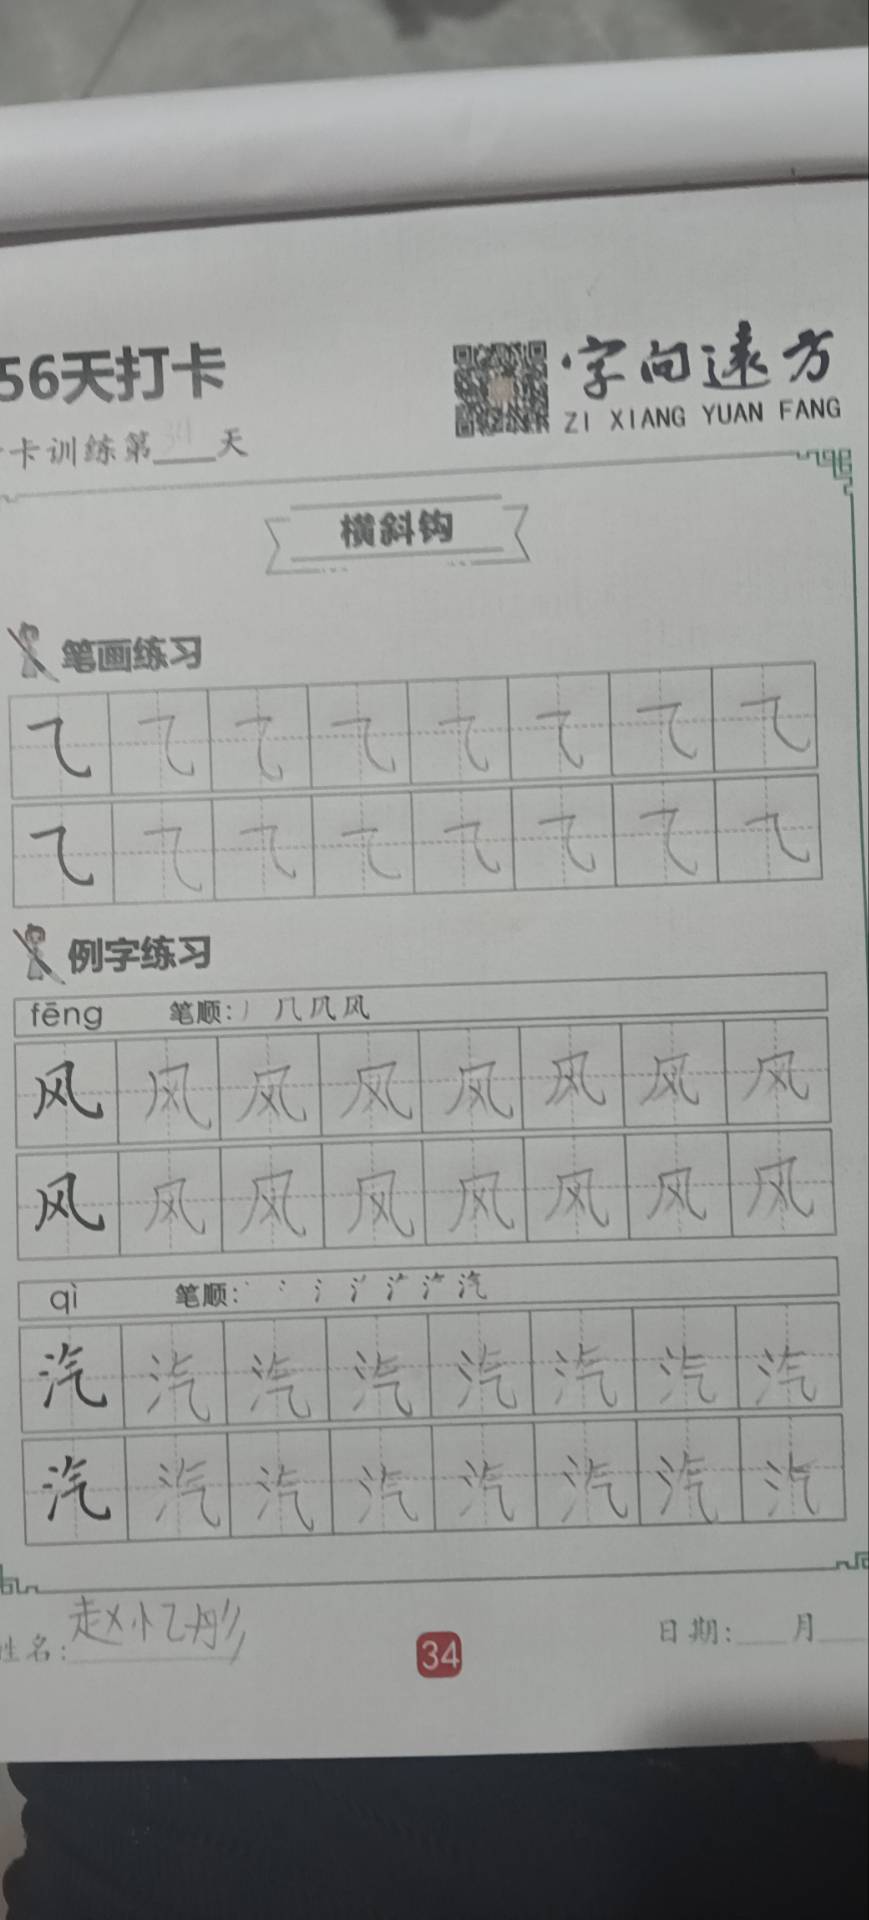 56天打卡
字向遠方
ZI XIANG YUAN FANG
卡训练第34天
横斜钩
笔画练习
⺄ ⺄ ⺄ ⺄ ⺄ ⺄ ⺄ ⺄
⺄ ⺄ ⺄ ⺄ ⺄ ⺄ ⺄ ⺄
例字练习
fēng 笔顺: 丿 几 风
风 风 风 风 风 风 风 风
风 风 风 风 风 风 风 风
qì 笔顺: 丶 冫 氵 汽
汽 汽 汽 汽 汽 汽 汽 汽
汽 汽 汽 汽 汽 汽 汽 汽
姓名: 赵忆彤
34
日期: 月